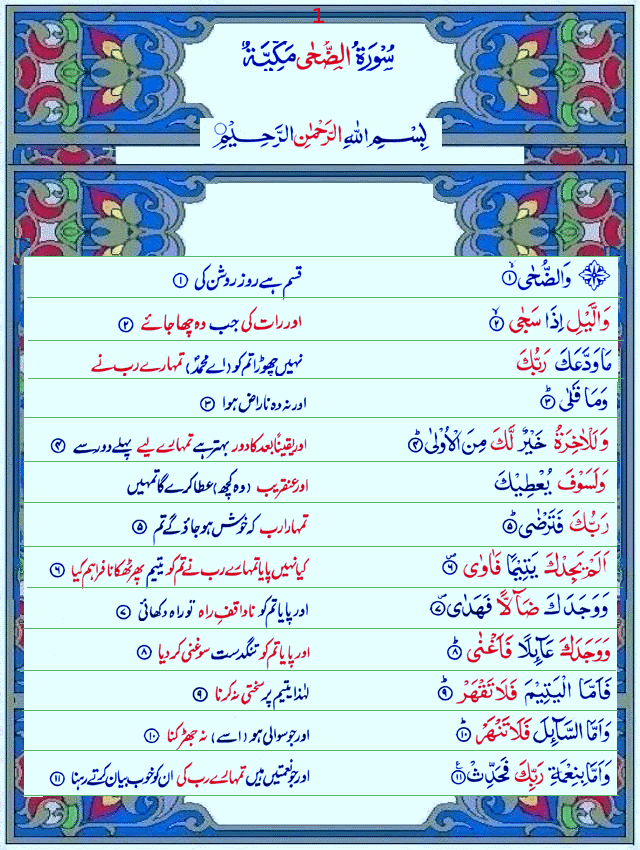 1
سُوْرَةُ الضُّحٰى مَكِّيَّةٌ
بِسْمِ اللهِ الرَّحْمٰنِ الرَّحِيْمِ
وَالضُّحٰى ۙ﴿۱﴾ قسم ہے روز روشن کی ﴿۱﴾
وَالَّيْلِ اِذَا سَجٰى ۙ﴿۲﴾ اور رات کی جب وہ چھا جائے ﴿۲﴾
مَا وَدَّعَكَ رَبُّكَ نہیں چھوڑا تم کو (اے محمدؐ) تمہارے رب نے
وَمَا قَلٰى ؕ﴿۳﴾ اور نہ وہ ناراض ہوا ﴿۳﴾
وَلَلْاٰخِرَةُ خَيْرٌ لَّكَ مِنَ الْاُوْلٰى ؕ﴿۴﴾ اور یقیناً بعد کا دور بہتر ہے تمہارے لیے پہلے دور سے ﴿۴﴾
وَلَسَوْفَ يُعْطِيْكَ اور عنقریب (وہ کچھ) عطا کرے گا تمہیں
رَبُّكَ فَتَرْضٰى ؕ﴿۵﴾ تمہارا رب کہ خوش ہو جاؤ گے تم ﴿۵﴾
اَلَمْ يَجِدْكَ يَتِيْمًا فَاٰوٰى ۪﴿۶﴾ کیا نہیں پایا تمہارے رب نے تم کو یتیم پھر ٹھکانا فراہم کیا ﴿۶﴾
وَوَجَدَكَ ضَآلًّا فَهَدٰى ۪﴿۷﴾ اور پایا تم کو ناواقفِ راہ تو راہ دکھائی ﴿۷﴾
وَوَجَدَكَ عَآىِٕلًا فَاَغْنٰى ؕ﴿۸﴾ اور پایا تم کو تنگدست سو غنی کر دیا ﴿۸﴾
فَاَمَّا الْيَتِيْمَ فَلَا تَقْهَرْ ؕ﴿۹﴾ لہٰذا یتیم پر سختی نہ کرنا ﴿۹﴾
وَاَمَّا السَّآىِٕلَ فَلَا تَنْهَرْ ؕ﴿۱۰﴾ اور جو سوالی ہو (اسے) نہ جھڑکنا ﴿۱۰﴾
وَاَمَّا بِنِعْمَةِ رَبِّكَ فَحَدِّثْ ﴿۱۱﴾ اور جو نعمتیں ہیں تمہارے رب کی ان کو خوب بیان کرتے رہنا ﴿۱۱﴾